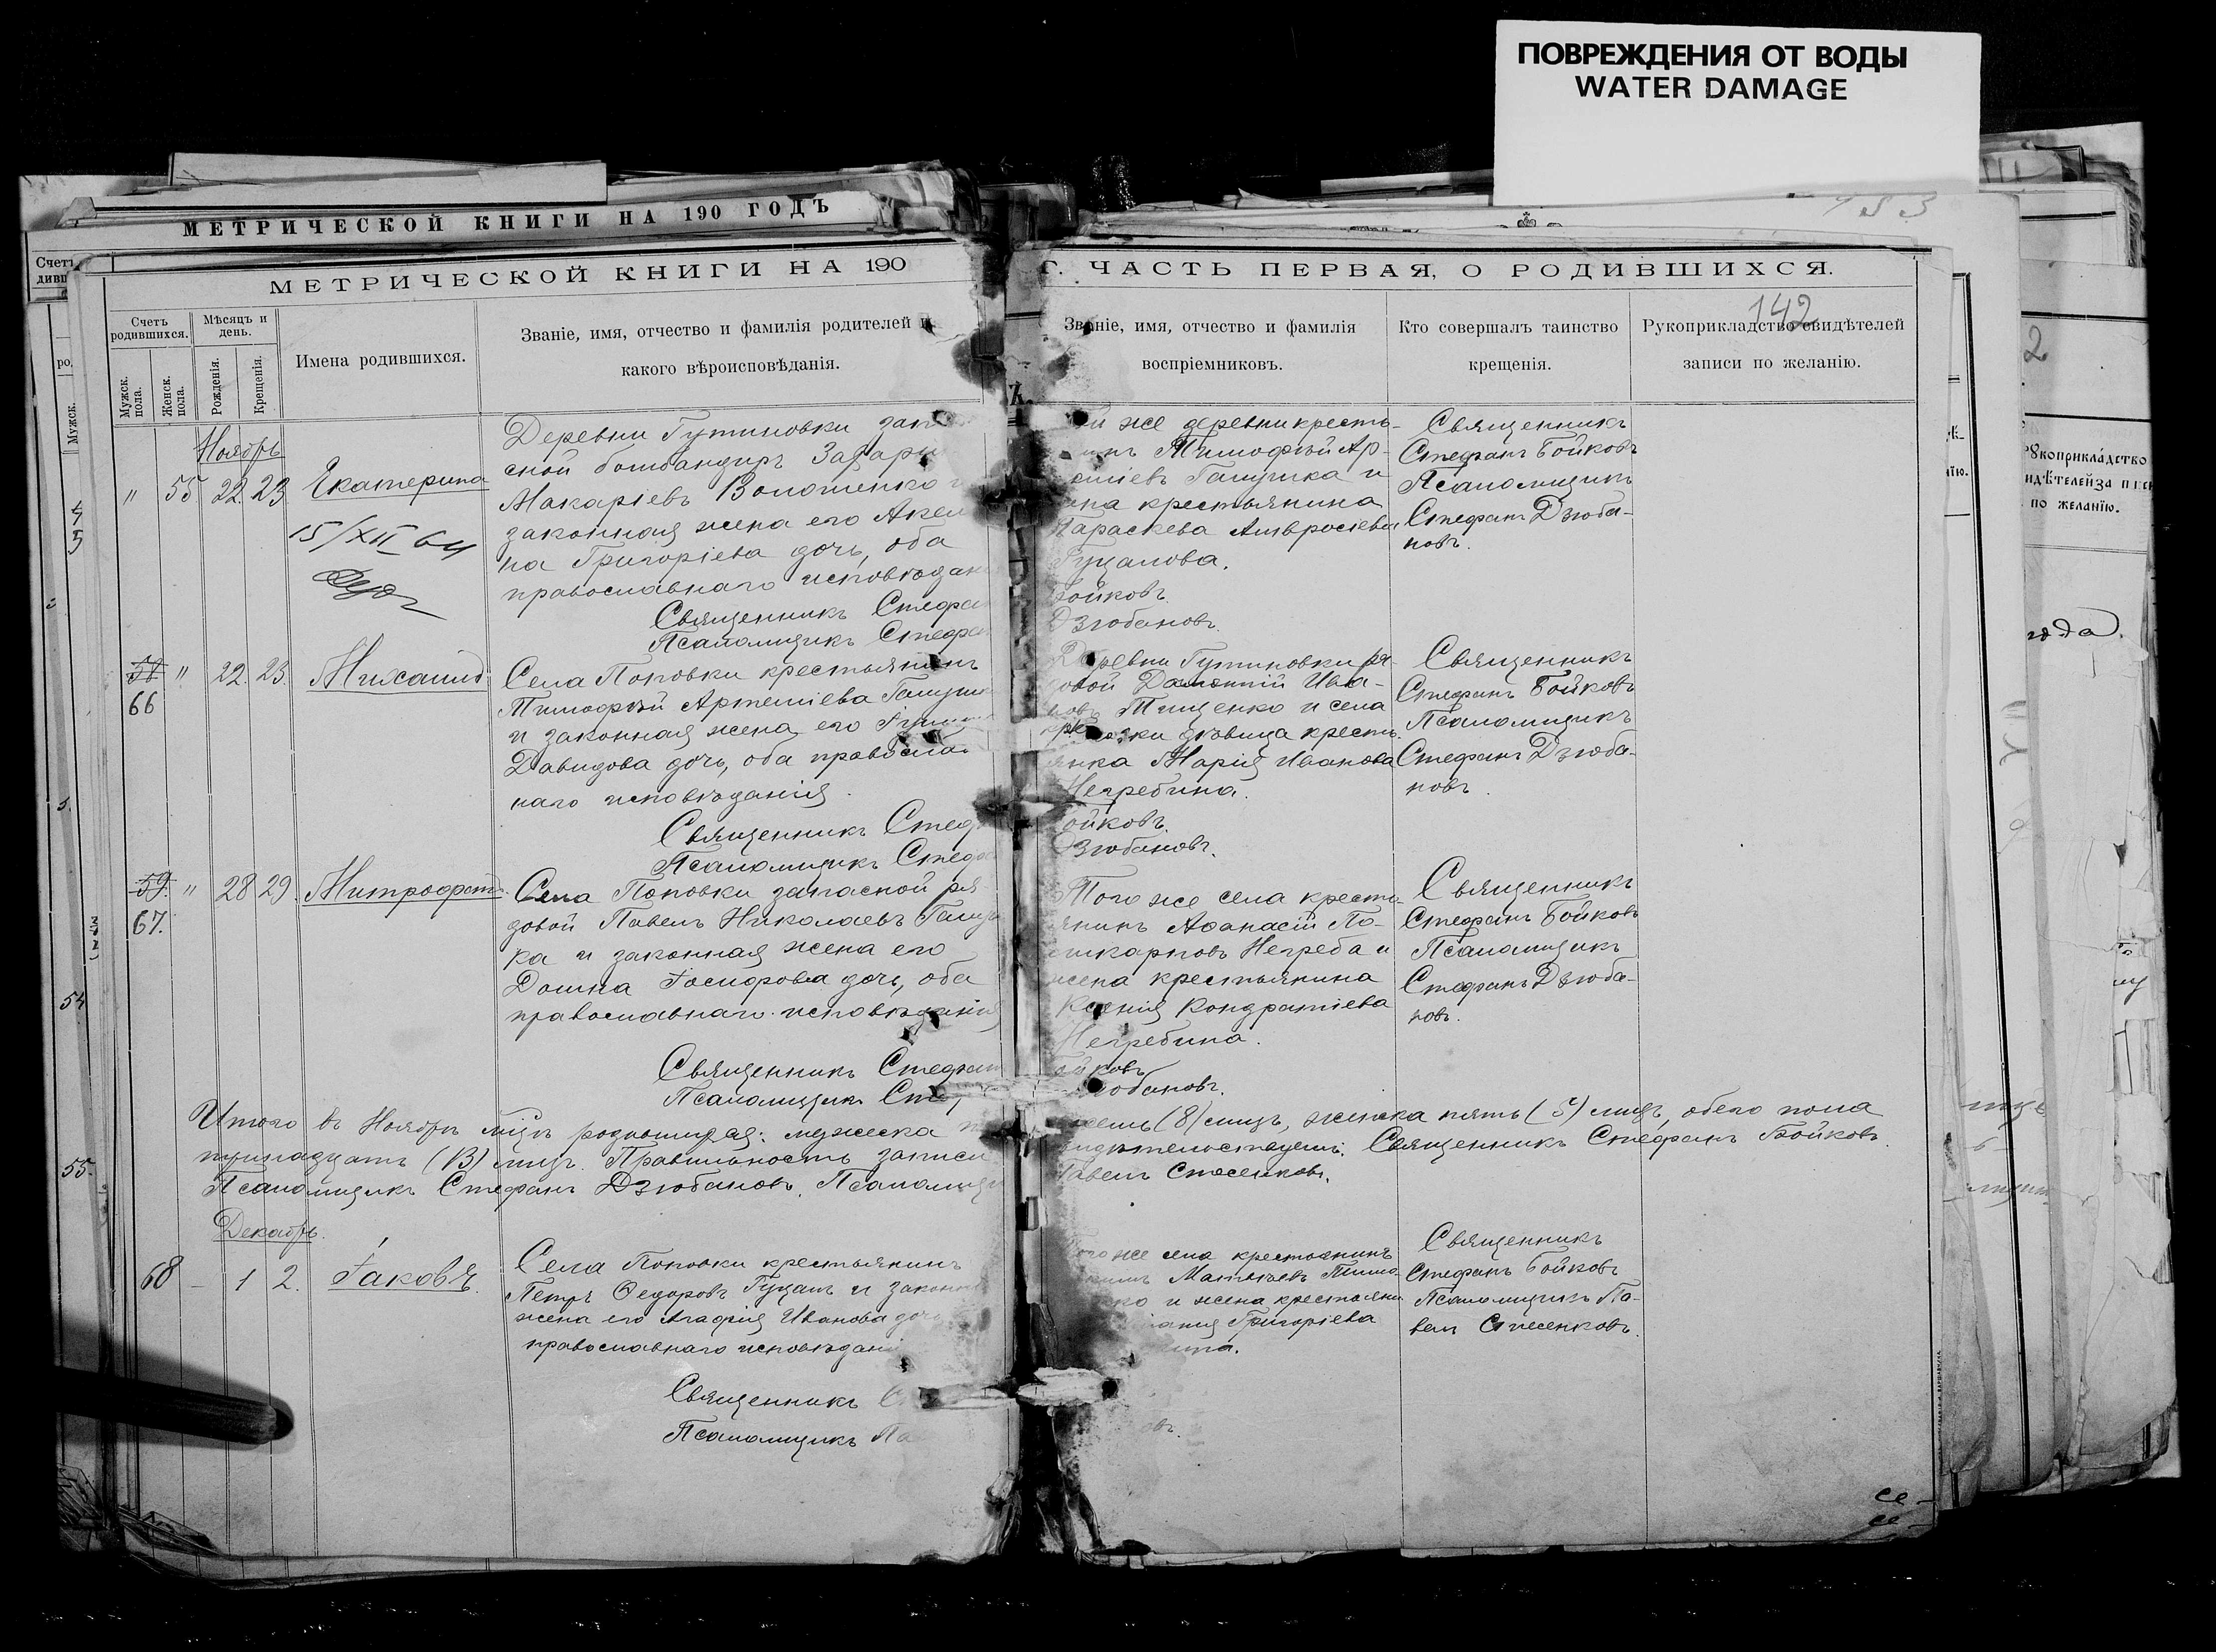 ПОВРЕЖДЕНИЯ ОТ ВОДЫ
WATER DAMAGE
МЕТРИЧЕСКОЙ КНИГИ НА 190 ГОДЪ
183
МЕТРИЧЕСКОЙ КНИГИ НА 190
Г. ЧАСТЬ ПЕРВАЯ, О РОДИВШИХСЯ.
142
Счетъ родившихся.
Мужск. пола.
Женск. пола.
Мѣсяцъ и день.
Рожденія.
Крещенія.
Имена родившихся.
Званіе, имя, отчество и фамилія родителей и
какого вѣроисповѣданія.
Званіе, имя, отчество и фамилія
воспріемниковъ.
Кто совершалъ таинство
крещенія.
Рукоприкладство свидѣтелей
записи по желанію.
Ноябрь
" 55 22. 23 Екатерина
15/XII 64
Деревни Гутиновки
сной бомбандиръ
Макаріевъ Волошенко
законная жена его
на Григоріева дочь, оба
православнаго исповѣдан
Священникъ Стефан
Псаломщикъ Стефан
же деревни кресть-
Тимофѣй Ар-
теміевъ Галушка и
жена крестьянина
Параскева Амвросіева
Гуцалова.
Бойковъ.
Дзюбановъ.
Священникъ
Стефанъ Бойковъ
Псаломщикъ
Стефанъ Дзюба-
новъ.
58 " 22. 23. Михаилъ
66
Села Поповки крестьянинъ
Тимофѣй Артеміева
и законная жена его
Давидова дочь, оба православ
наго исповѣданія.
Священникъ Стеф
Псаломщикъ Стефа
Деревни Гутиновки ря-
довой Ива-
новъ Тищенко и села
дѣвица кресть-
янка Марія Иванова
Негребина.
Бойковъ.
Дзюбановъ.
Священникъ
Стефанъ Бойковъ
Псаломщикъ
Стефанъ Дзюба-
новъ.
59. " 28 29. Митрофанъ
67.
Села Поповки запасной ря
довой Павелъ Николаевъ Галуш
ка и законная жена его
Домна Іосифова дочь, оба
православнаго исповѣданія
Священникъ Стефан
Псаломщикъ Сте
Того же села кресть-
янинъ Аѳанасій По-
ликарповъ Негреба и
жена крестьянина
Ксенія Кондратіева
Негребина.
Бойковъ
Дзюбановъ.
Священникъ
Стефанъ Бойковъ
Псаломщикъ
Стефанъ Дзюба-
новъ.
Итого въ Ноябрѣ родившихся: мужеска
(8) лицъ, женска пять (5) лицъ, обего пола
тринадцать (13) лицъ. Правильность записи
свидѣтельствуемъ: Священникъ Стефанъ Бойковъ.
Псаломщикъ Стефанъ Дзюбановъ. Псаломщи
Павелъ Стесенковъ.
Декабрь.
68 - 1 2. Іаковъ.
Села Поповки крестьянинъ
Петръ Ѳедоровъ Гуцалъ и законн
жена его Агафія Иванова дочь
православнаго исповѣдані
Священникъ
Псаломщикъ Па
Того же села крестьянинъ
Матвѣевъ Тимо-
и жена крестьяни
Григоріева
Священникъ
Стефанъ Бойковъ
Псаломщикъ Па-
велъ Стесенковъ.